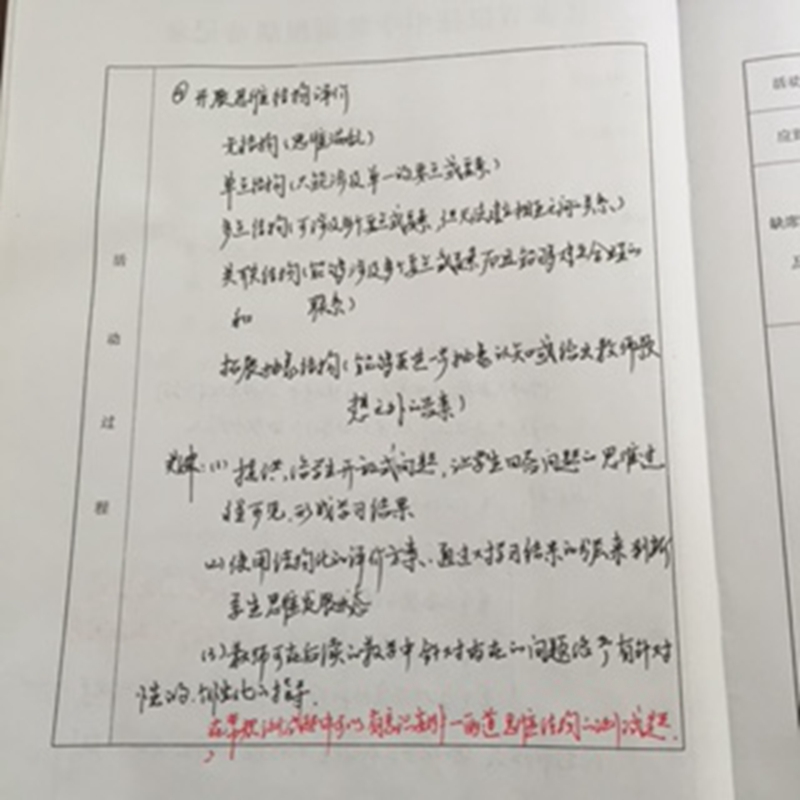 ④开展思维结构评价
无结构(思维混乱)
单点结构(只能涉及单一的要点或要素)
多点结构(可涉及多个要点或要素,但无法建立相互之间的关系)
关联结构(能够涉及多个要点或要素,而且能够建立合理的
和 联系)
拓展抽象结构(能够更进一步抽象认知或给出教师预
想之外的答案)
关键:(1)提供给学生开放式问题,让学生回答问题的思维过
程可见,形成学习结果
(2)使用结构化的评价方案,通过对学习结果的分层来判断
学生思维发展状态
(3)教师可在后续的教学中针对存在的问题给予有针对
性的、个性化的指导.
在单权测试中可以有意识安排一两道思维结构的测试题.
活
动
过
程
活动
应到
缺席